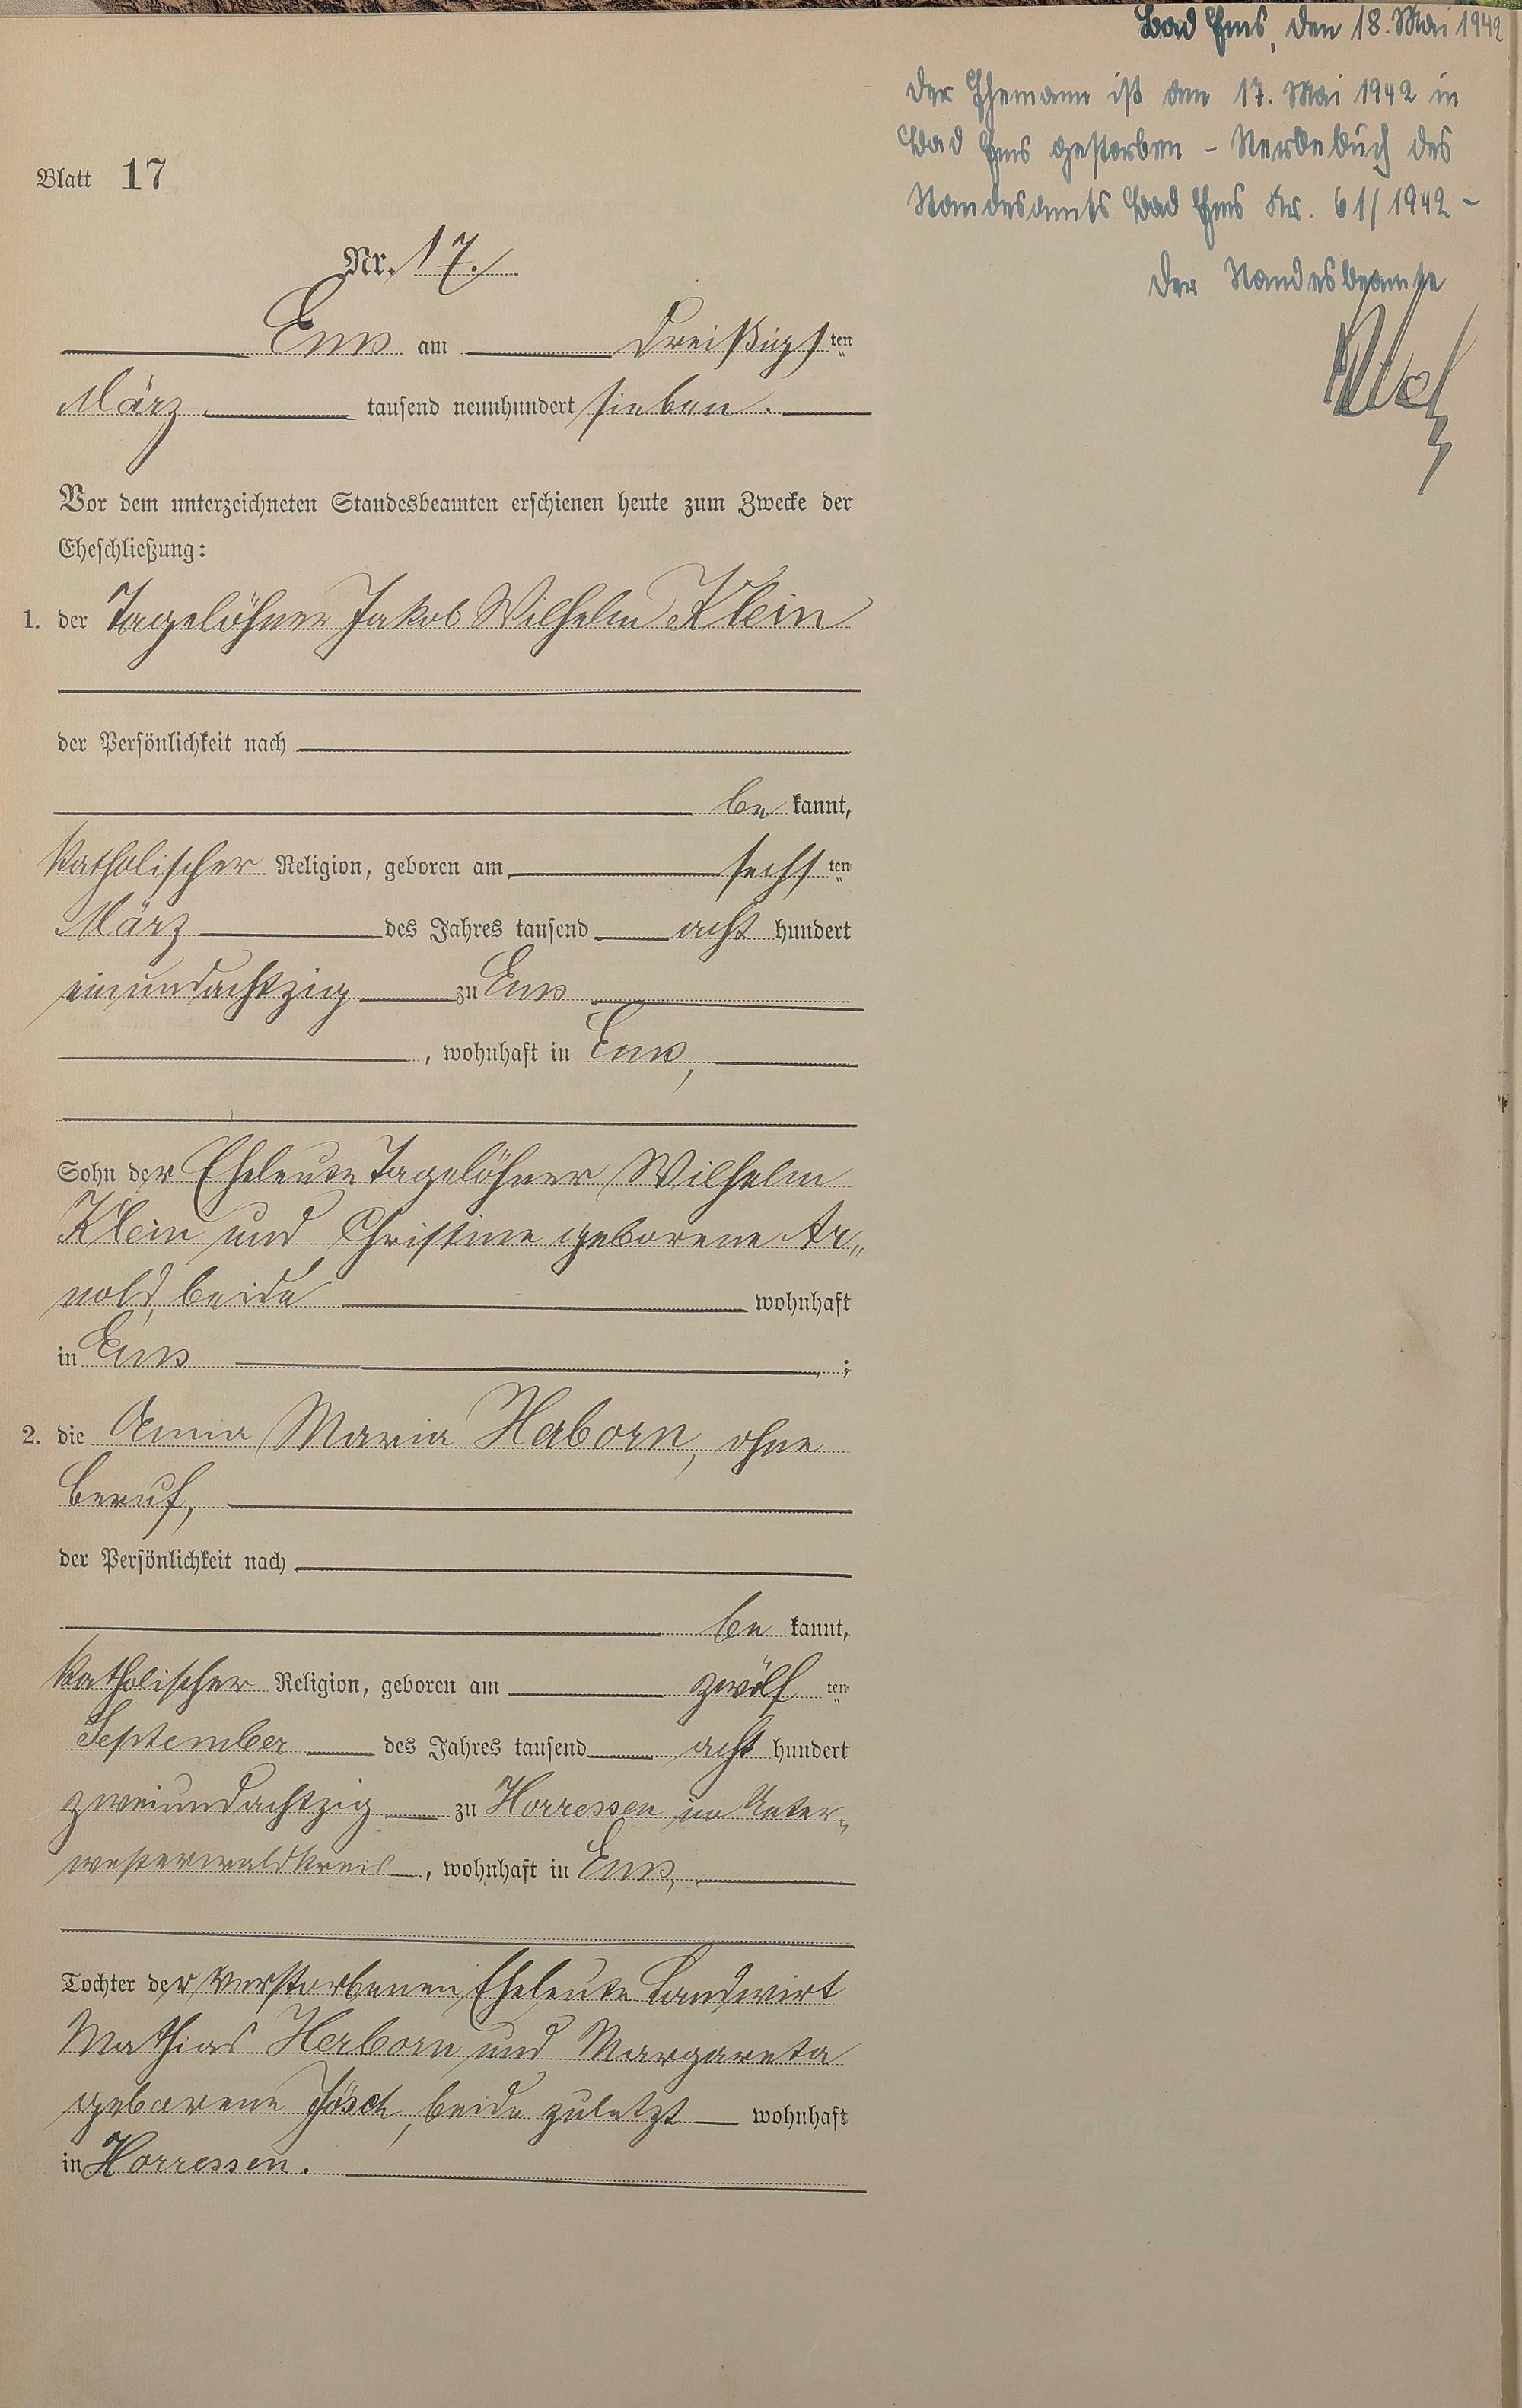 Bad Ems, den 18. Mai 1942
Der Ehemann ist am 17. Mai 1942 in
Bad Ems gestorben – Sterbebuch des
Standesamts Bad Ems Nr. 61/1942 –
Der Standesbeamte
Blatt 17
Nr. 17.
Ems am dreißigsten
März tausend neunhundert sieben.
Vor dem unterzeichneten Standesbeamten erschienen heute zum Zwecke der
Eheschließung:
1. der Tagelöhner Jakob Wilhelm Klein
der Persönlichkeit nach
be kannt,
katholischer Religion, geboren am sechsten
März des Jahres tausend acht hundert
einundachtzig zu Ems
, wohnhaft in Ems,
Sohn der Eheleute Tagelöhner Wilhelm
Klein und Christine geborene Ar„
nold, beide wohnhaft
in Ems ;
2. die Anna Maria Herborn, ohne
Beruf,
der Persönlichkeit nach
be kannt,
katholischer Religion, geboren am zwölften
September des Jahres tausend acht hundert
zweiundachtzig zu Horressen im Unter„
westerwaldkreis, wohnhaft in Ems,
Tochter der verstorbenen Eheleute Landwirt
Mathias Herborn und Margareta
geborene Jösch, beide zuletzt wohnhaft
in Horressen.